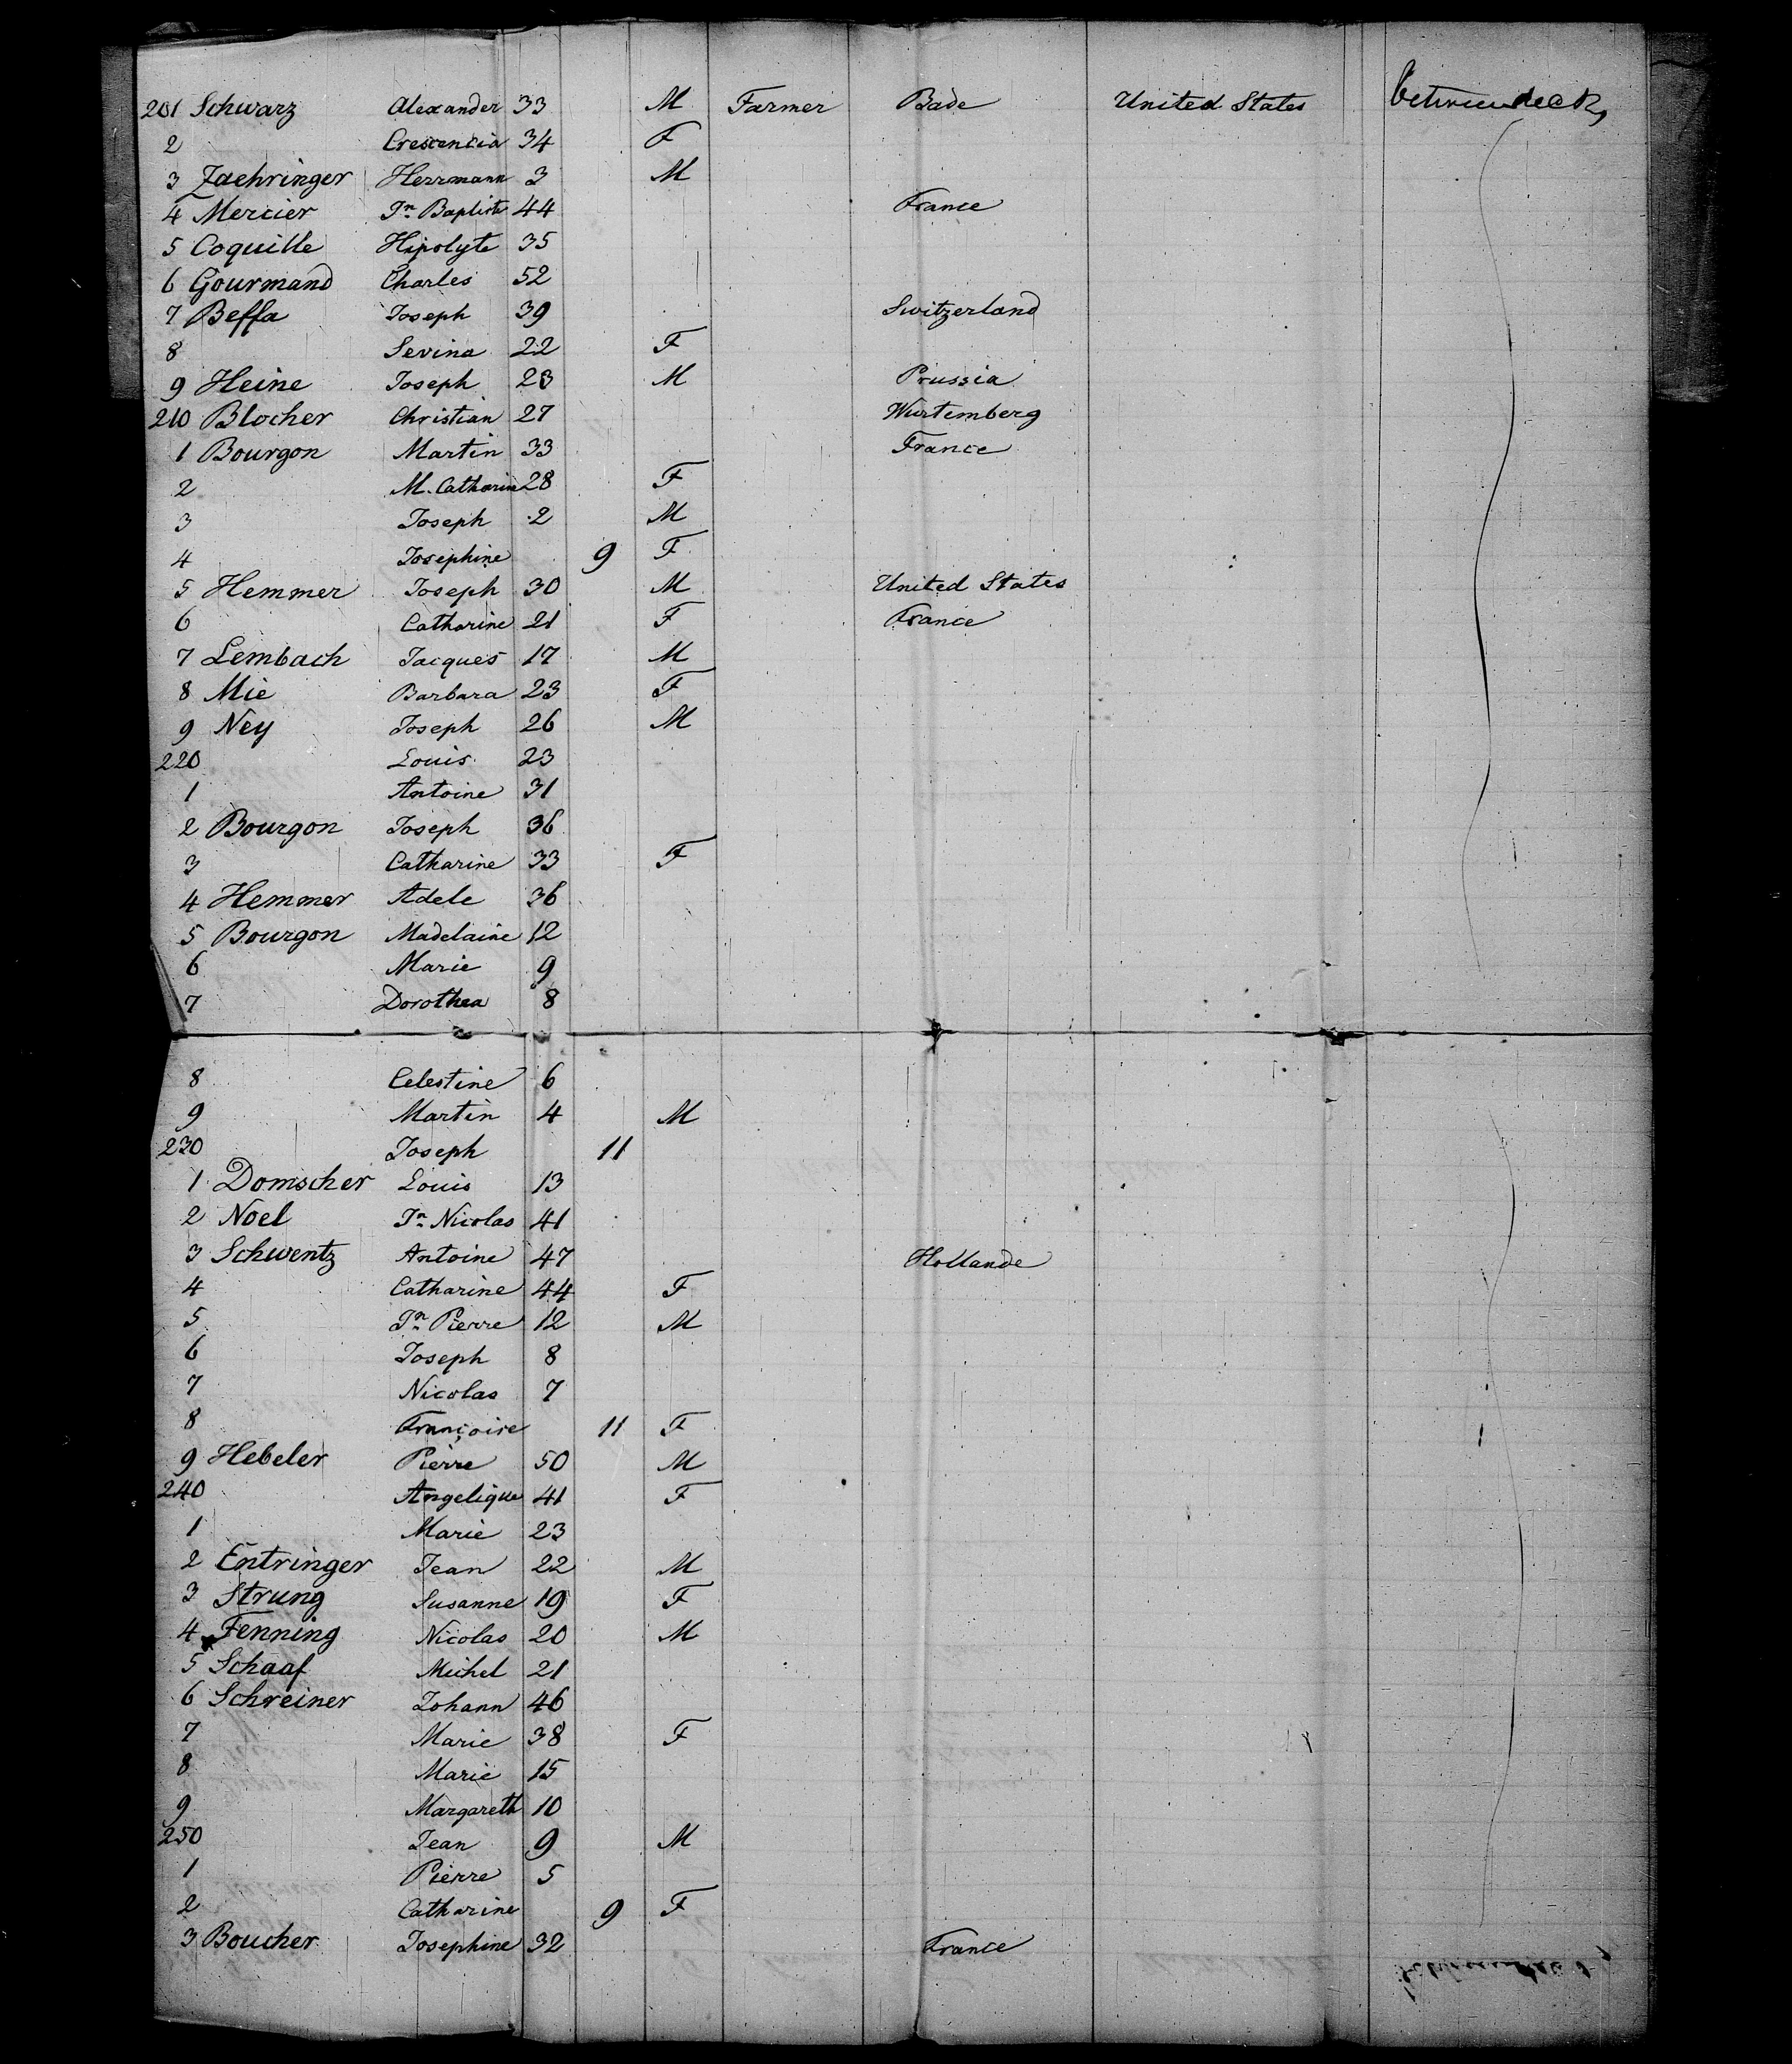 201 Schwarz Alexander 33 M Farmer Bade United States betweendeck
2 Crescencia 34 F
3 Zaehringer Herrmann 3 M
4 Mercier Jn Baptiste 44 France
5 Coquille Hipolyte 35
6 Gourmand Charles 52
7 Beffa Joseph 39 Switzerland
8 Sevina 22 F
9 Heine Joseph 23 M Prussia
210 Blocher Christian 27 Wurtemberg
1 Bourgon Martin 33 France
2 M. Catharine 28 F
3 Joseph 2 M
4 Josephine 9 F
5 Hemmer Joseph 30 M United States
6 Catharine 21 F France
7 Lembach Jacques 17 M
8 Mie Barbara 23 F
9 Ney Joseph 26 M
220 Louis 23
1 Antoine 31
2 Bourgon Joseph 36
3 Catharine 33 F
4 Hemmer Adele 36
5 Bourgon Madelaine 12
6 Marie 9
7 Dorothea 8
8 Celestine 6
9 Martin 4 M
230 Joseph 11
1 Domscher Louis 13
2 Noel Jn Nicolas 41
3 Schwentz Antoine 47 Hollande
4 Catharine 44 F
5 Jn Pierre 12 M
6 Joseph 8
7 Nicolas 7
8 Françoise 11 F
9 Hebeler Pierre 50 M
240 Angelique 41 F
1 Marie 23
2 Entringer Jean 22 M
3 Strung Susanne 19 F
4 Fenning Nicolas 20 M
5 Schaaf Michel 21
6 Schreiner Johann 46
7 Marie 38 F
8 Marie 15
9 Margareth 10
250 Jean 9 M
1 Pierre 5
2 Catharine 9 F
3 Boucher Josephine 32 France